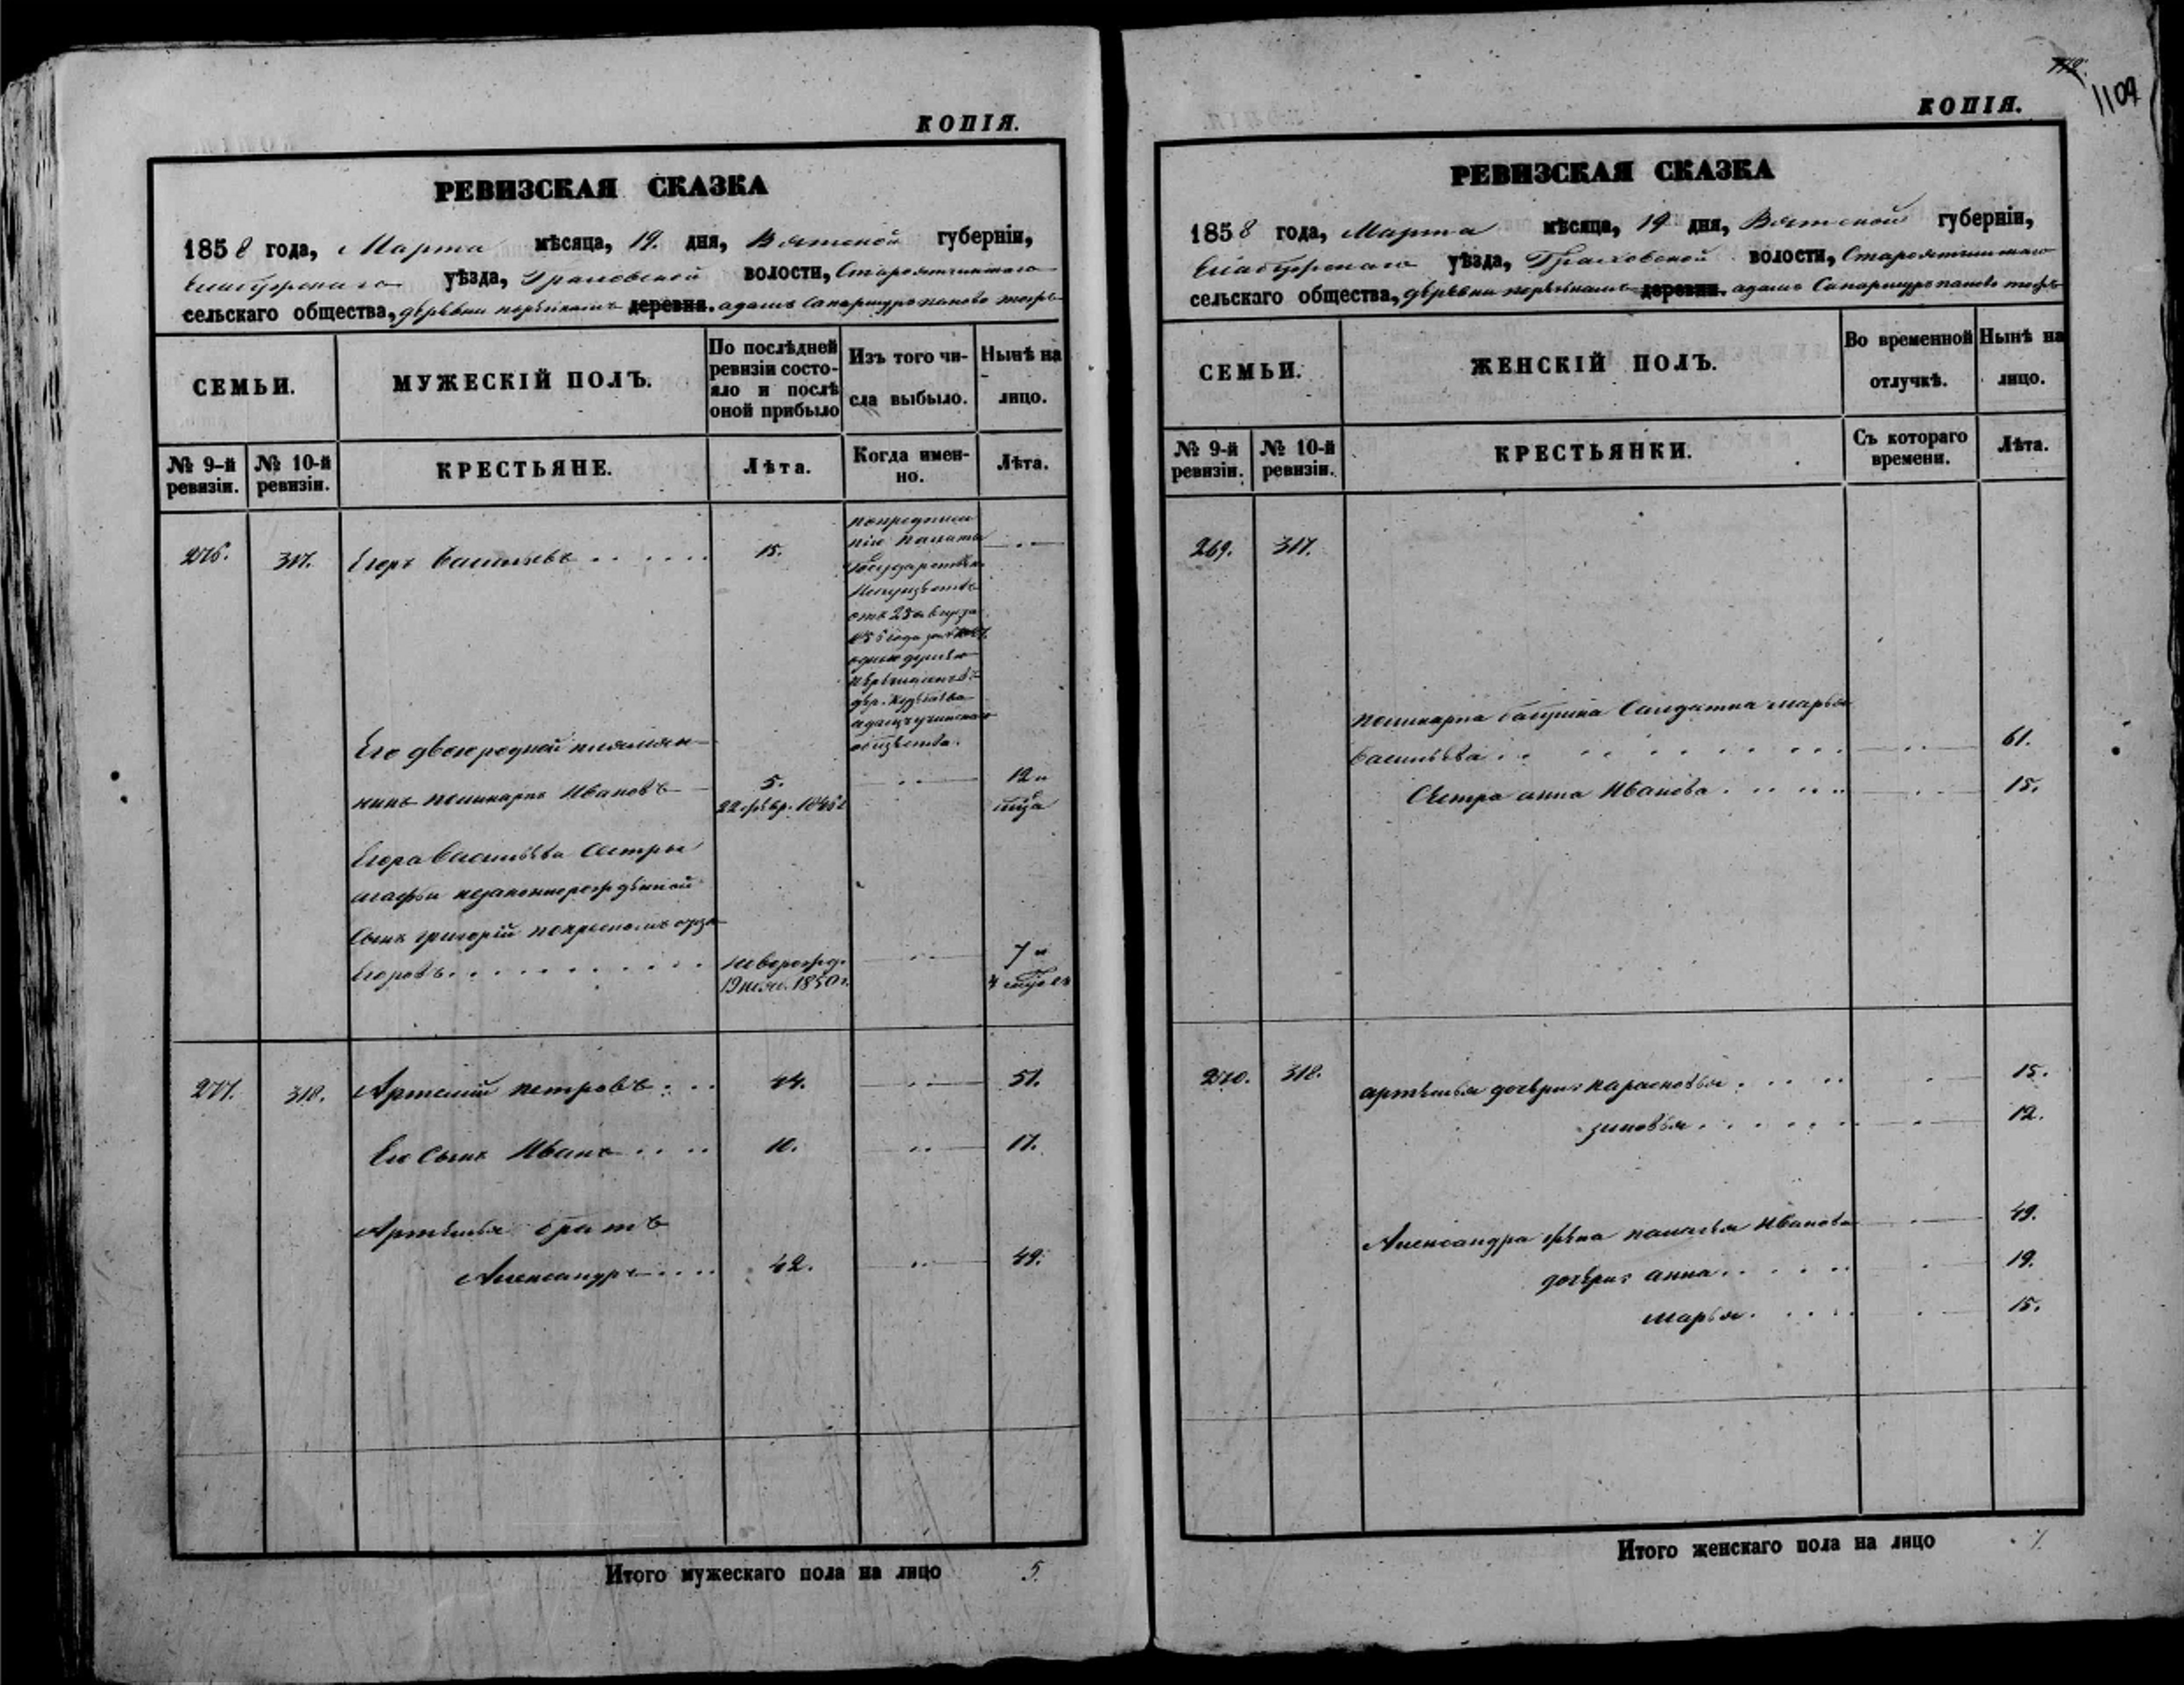 КОПІЯ.
РЕВИЗСКАЯ СКАЗКА
1858 года, Марта мѣсяца, 19. дня, Вятской губерніи,
Елабужскаго уѣзда, Граховской волости, Староятчинскаго
сельскаго общества, деревни деревни.
СЕМЬИ.
МУЖЕСКІЙ ПОЛЪ.
По послѣдней
ревизіи состо-
яло и послѣ
оной прибыло
Изъ того чи-
сла выбыло.
Нынѣ на
лицо.
№ 9-й
ревизіи.
№ 10-й
ревизіи.
КРЕСТЬЯНЕ.
Лѣта.
Когда имен-
но.
Лѣта.
276. 317. Егоръ Васильевъ 15.
попредписа
нію Палаты
Государствен
Имуществъ
отъ 25 августа
года за
одною душею
перечисленъ въ
дер.
общества.
Его двоюродной племян
никъ Поликарпъ Ивановъ 5. 12 и
22 февр. 1846 г.
Егора Васильева сестры
Агафьи незаконнорожденной
сынъ Григорій
Егоровъ новорожд. 7 и
19 1850 г. 4
277. 318. Артемій Петровъ 44. 51.
Его сынъ Иванъ 10. 17.
Артемья братъ
Александръ 42. 49.
Итого мужескаго пола на лицо 5.
1109
КОПІЯ.
РЕВИЗСКАЯ СКАЗКА
1858 года, Марта мѣсяца, 19 дня, Вятской губерніи,
Елабужскаго уѣзда, Граховской волости, Староятчинскаго
сельскаго общества, деревни деревни.
СЕМЬИ.
ЖЕНСКІЙ ПОЛЪ.
Во временной
отлучкѣ.
Нынѣ на
лицо.
№ 9-й
ревизіи.
№ 10-й
ревизіи.
КРЕСТЬЯНКИ.
Съ котораго
времени.
Лѣта.
269. 317.
Поликарпа бабушка Солдатка Марья
Васильева 61.
Сестра Анна Иванова 15.
270. 318. Артемья дочери: Парасковья 15.
Зиновья 12.
Александра жена Паланья Иванова 49.
дочери: Анна 19.
Марья 15.
Итого женскаго пола на лицо 7.